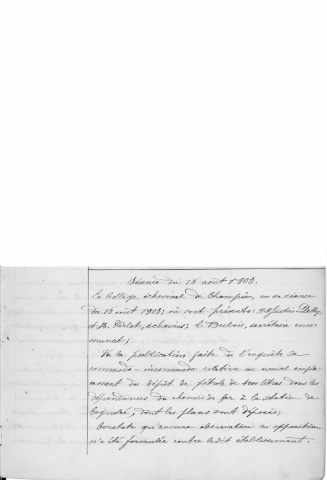 Séance du 18 août 1903.
Le Collège échevinal de Champion, en sa séance
du 18 août 1903; où sont présents:
et échevins; secrétaire com-
munal;
Vu la publication faite de l'enquête de
commodo-incommodo relative au nouvel empla-
cement du dépôt de pétrole de 3000 litres dans les
dépendances du chemin de fer à la station de
Cognelée, dont les plans sont déposés;
Constate qu'aucune observation ni opposition
n'a été formulée contre ledit établissement.